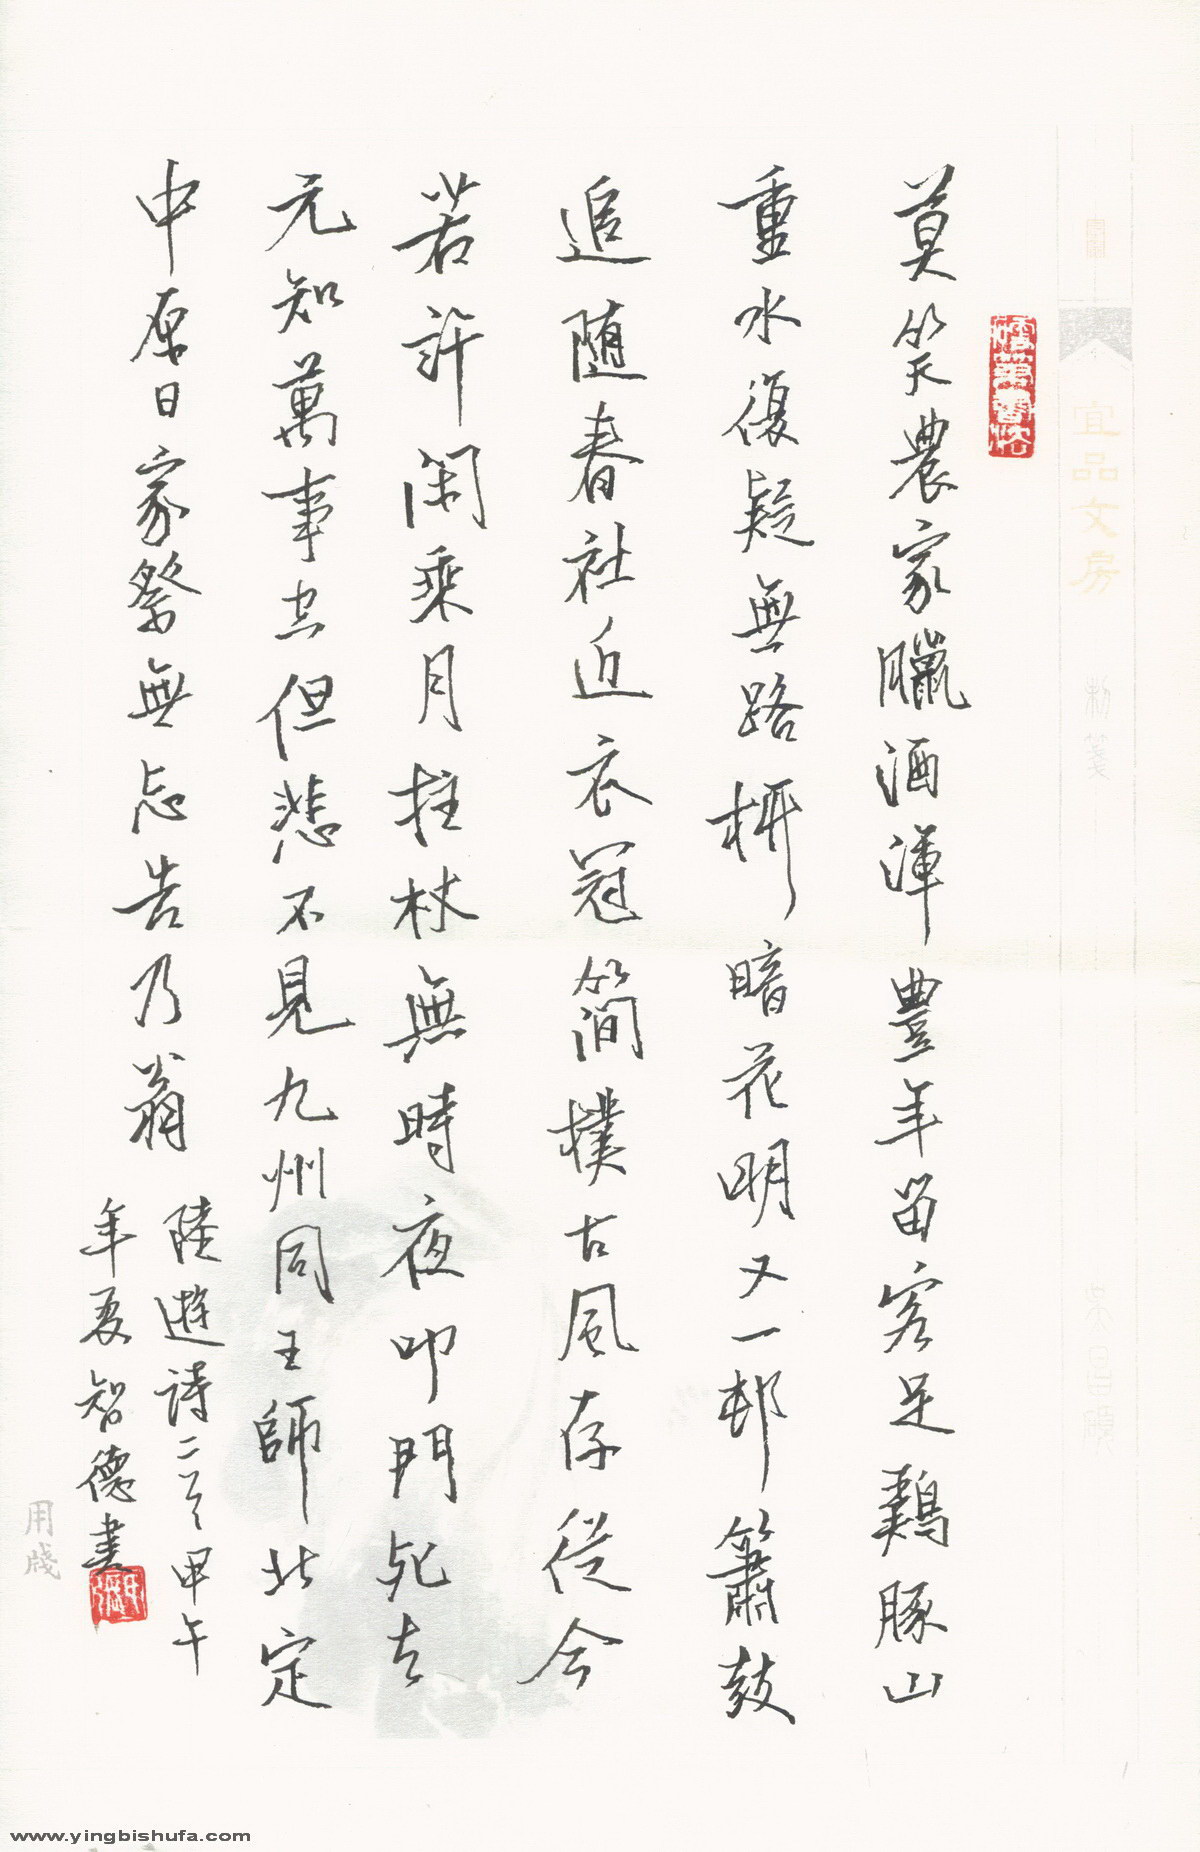 莫笑農家臘酒渾豐年留客足鷄豚山
重水復疑無路柳暗花明又一邨簫鼓
追隨春社近衣冠簡樸古風存從今
若許閑乘月拄杖無時夜叩門死去
元知萬事空但悲不見九州同王師北定
中原日家祭無忘告乃翁
陸遊詩二首甲午
年夏智德書
宜品文房
制箋
吴昌碩
用牋
www.yingbishufa.com